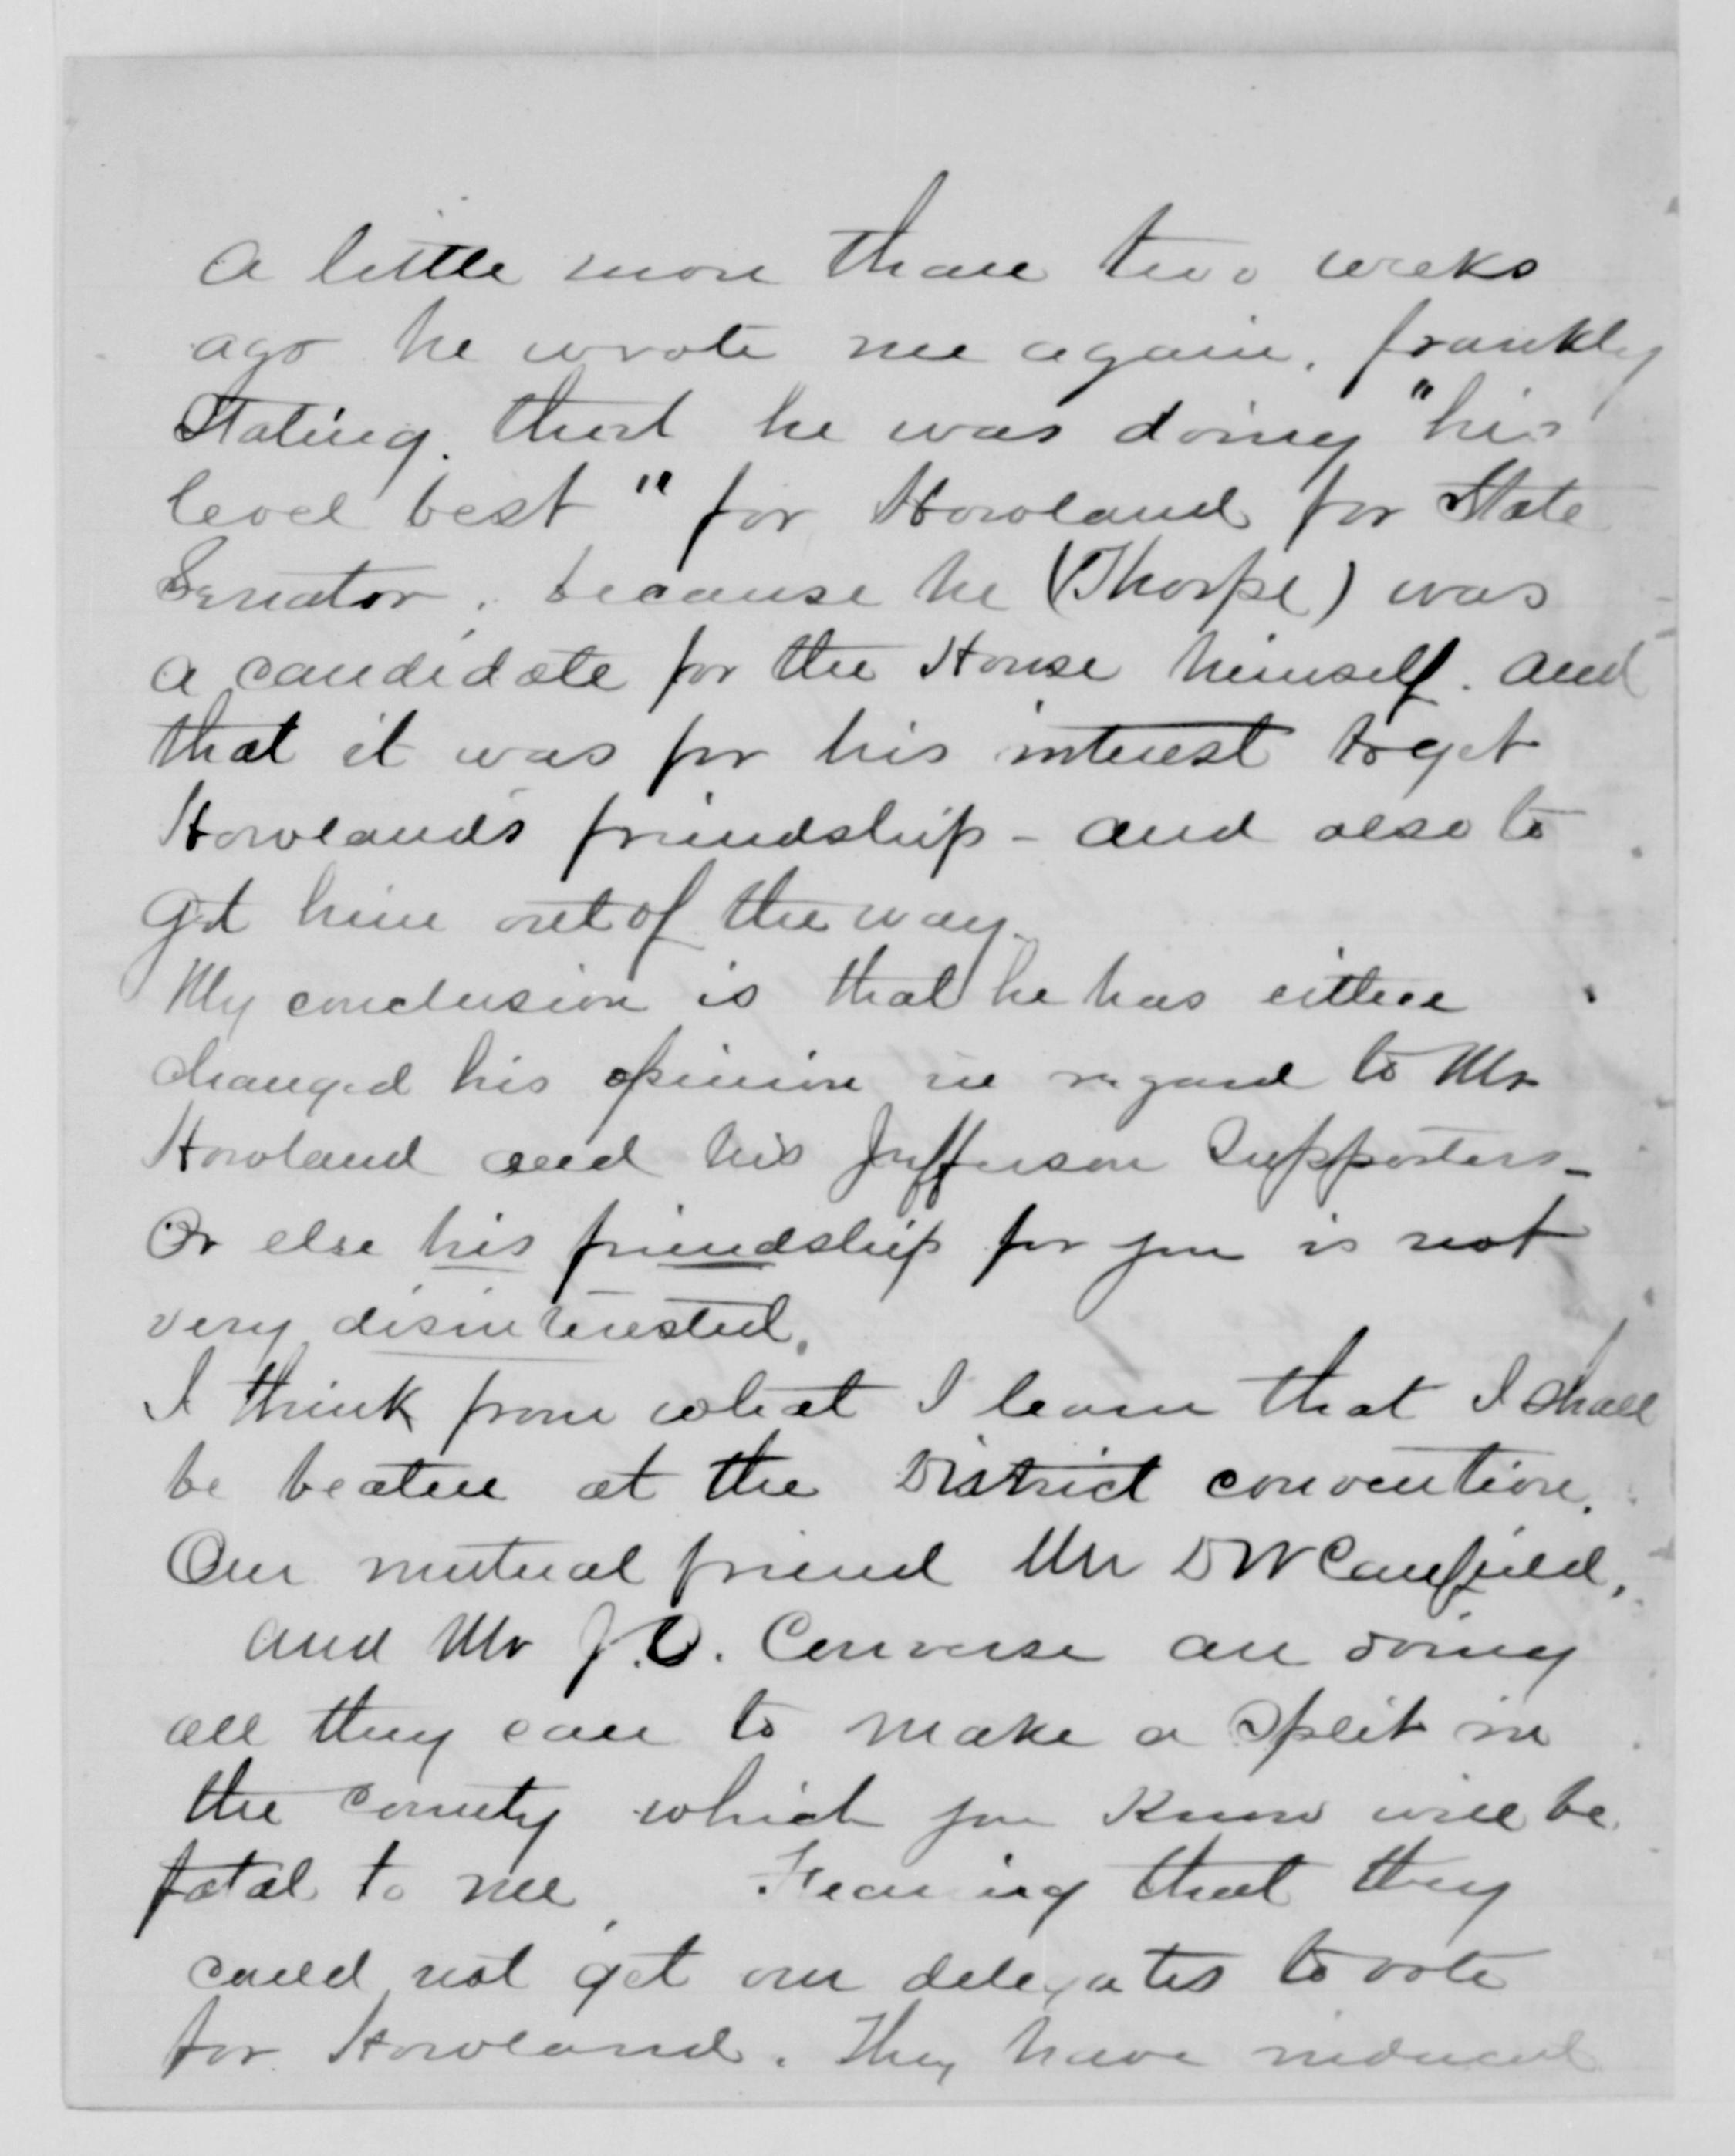 A little more than two weeks
ago he wrote me again, frankly
stating, that he was doing "his
level best" for Howland for State
Senator, because he (Thorpe) was
a candidate for the House himself. and
that it was for his interest to get
Howlands friendship - and also to
get him out of the way.
My conclusion is that he has either
changed his opinion in regard to Mr
Howland and his Jefferson Supporters -
Or else his friendship for you is not
very disinterested.
I think from what I learn that I shall
be beaten at the District convention.
Our mutual friend Mr D W Canfield,
and Mr J.O. Converse are doing
all they can to make a split in
the county which you know will be
fatal to me, Fearing that they
could not get our delegates to vote
for Howland. They have induced